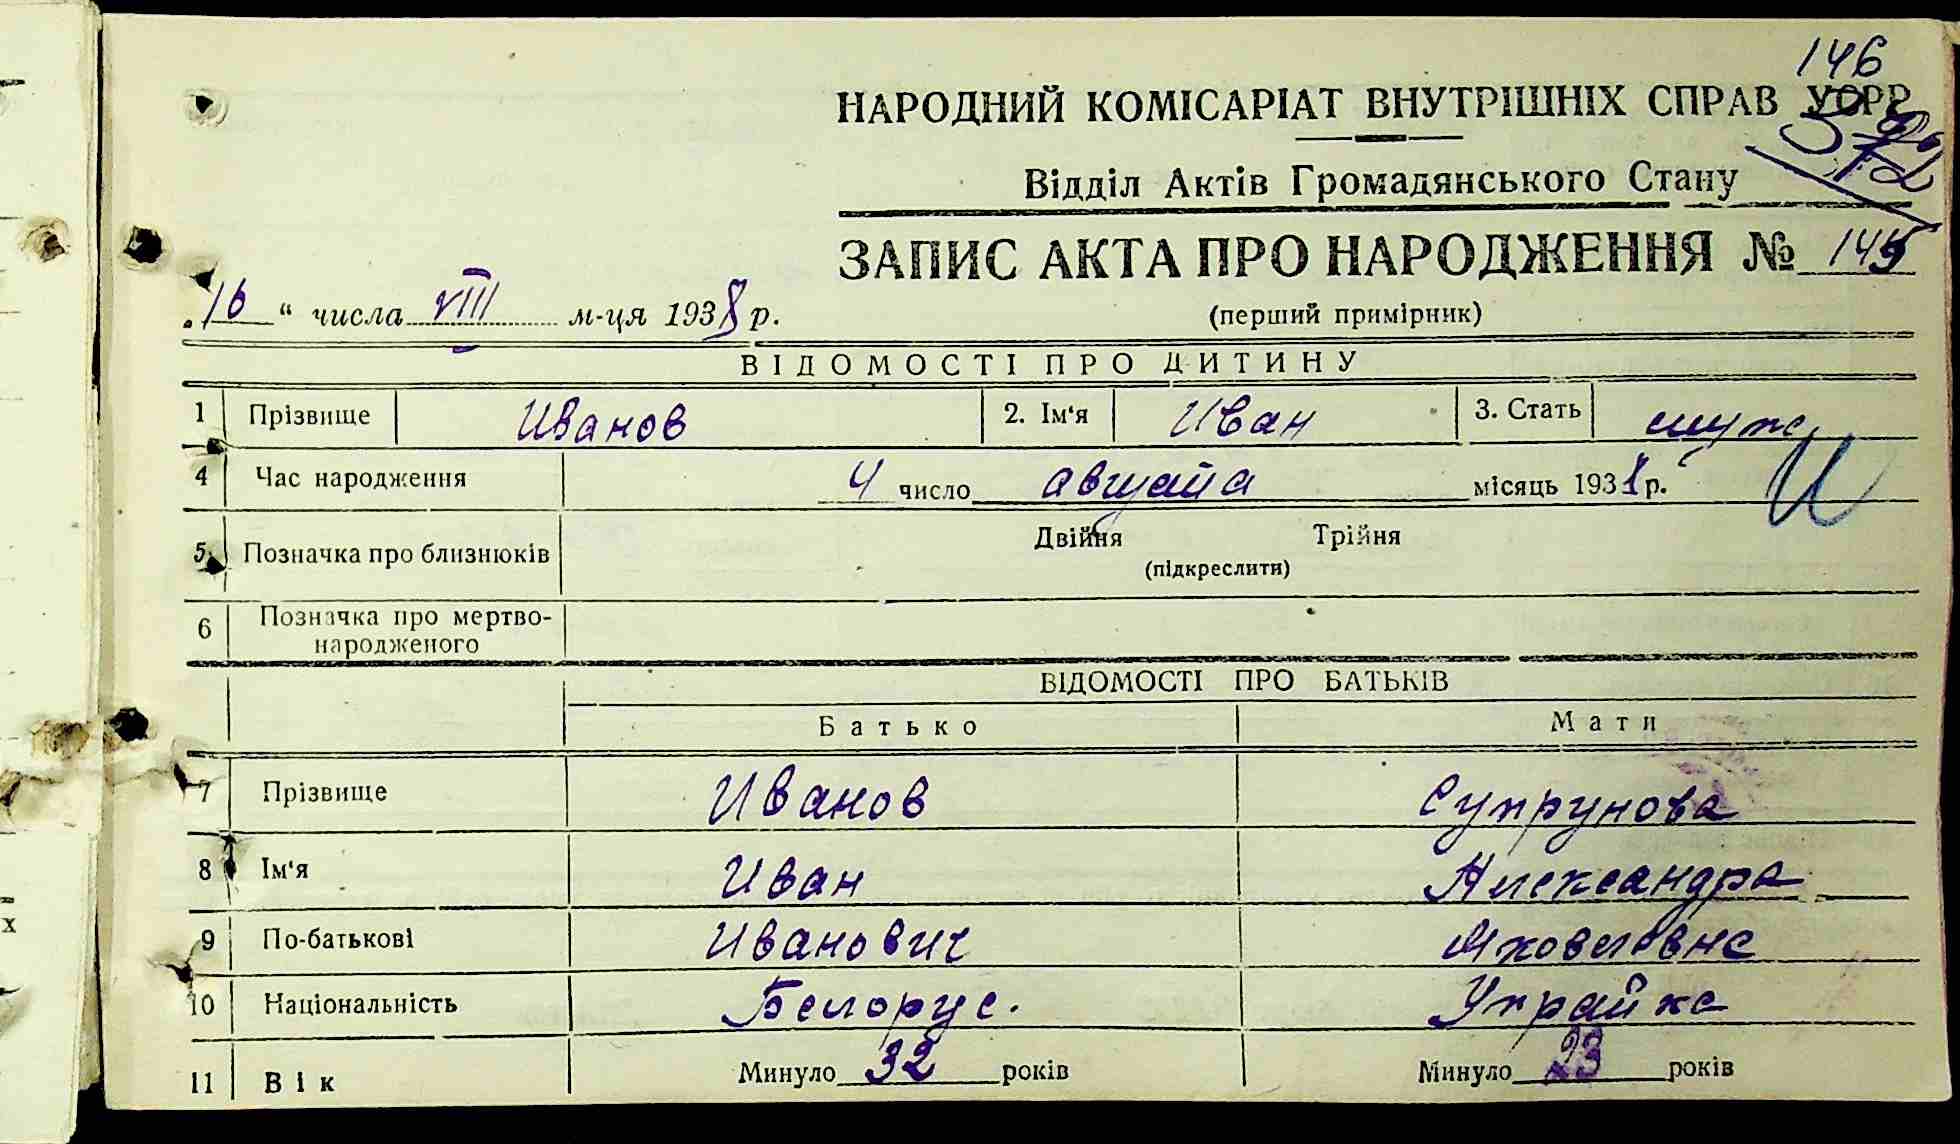 146
НАРОДНИЙ КОМІСАРІАТ ВНУТРІШНІХ СПРАВ УСРР
Відділ Актів Громадянського Стану
ЗАПИС АКТА ПРО НАРОДЖЕННЯ № 145
„16“ числа VIII м-ця 1938 р.
(перший примірник)
ВІДОМОСТІ ПРО ДИТИНУ
1 Прізвище Иванов 2. Ім‘я Иван 3. Стать муж.
4 Час народження 4 число августа місяць 1938 р.
И
5 Позначка про близнюків Двійня Трійня
(підкреслити)
6 Позначка про мертво-
народженого
ВІДОМОСТІ ПРО БАТЬКІВ
Батько Мати
7 Прізвище Иванов Супрунова
8 Ім‘я Иван Александра
9 По-батькові Иванович Яковловна
10 Національність Белорус. Украйка
11 Вік Минуло 32 років Минуло 23 років
х